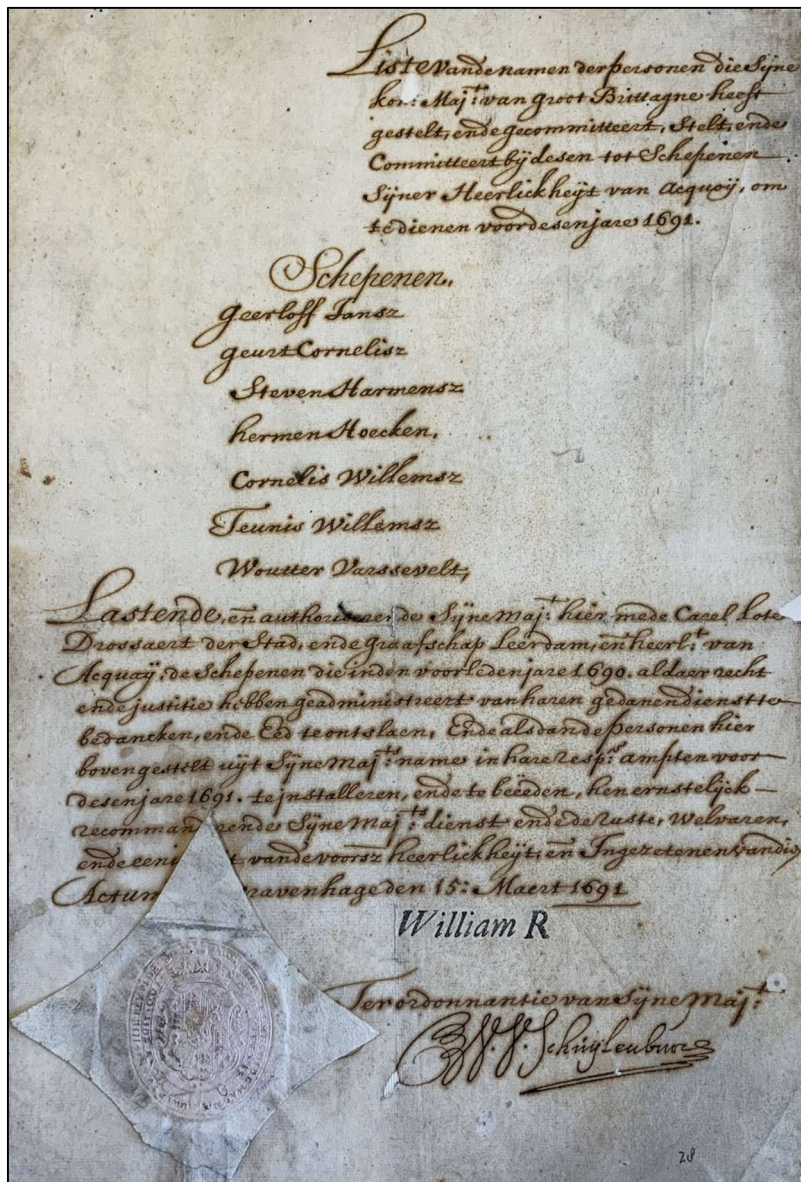 Liste vande namen der personen die Sijne
kon: Majt: van Groot Brittagne heeft
gestelt, ende gecommitteert, Stelt, ende
Committeert bij desen tot Schepenen
Sijner Heerlickheijt van Acquoij, om
te dienen voor desen jare 1691.
Schepenen,
Geerloff Jansz
Geurt Cornelisz
Steven Harmensz
hermen Hoecken,
Cornelis Willemsz
Teunis Willemsz
Woutter Varssevelt,
Lastende, en authoriserende Sijne Majt: hier mede Carel Lote
Drossaert der Stad, ende Graafschap Leerdam, en heerlt: van
Acquaij, de Schepenen die inden voorleden jare 1690. aldaer recht
ende justitie hebben geadministreert van haren gedanen dienst te
bedancken, ende Eed te ontslaen, Ende als dan de personen hier
boven gestelt uijt Sijne Majts: name in hare resp: ampten voor
desen jare 1691. te installeren, ende te beëeden, hen ernstelijck
Sijne Majts: dienst ende de ruste, welvaren,
ende vande voorsz heerlickheijt, en Ingezetenen vandien
Actum ravenhage den 15: Maert 1691
William R
Ter ordonnantie van Sijne Majt:
Schuijlenburg
28